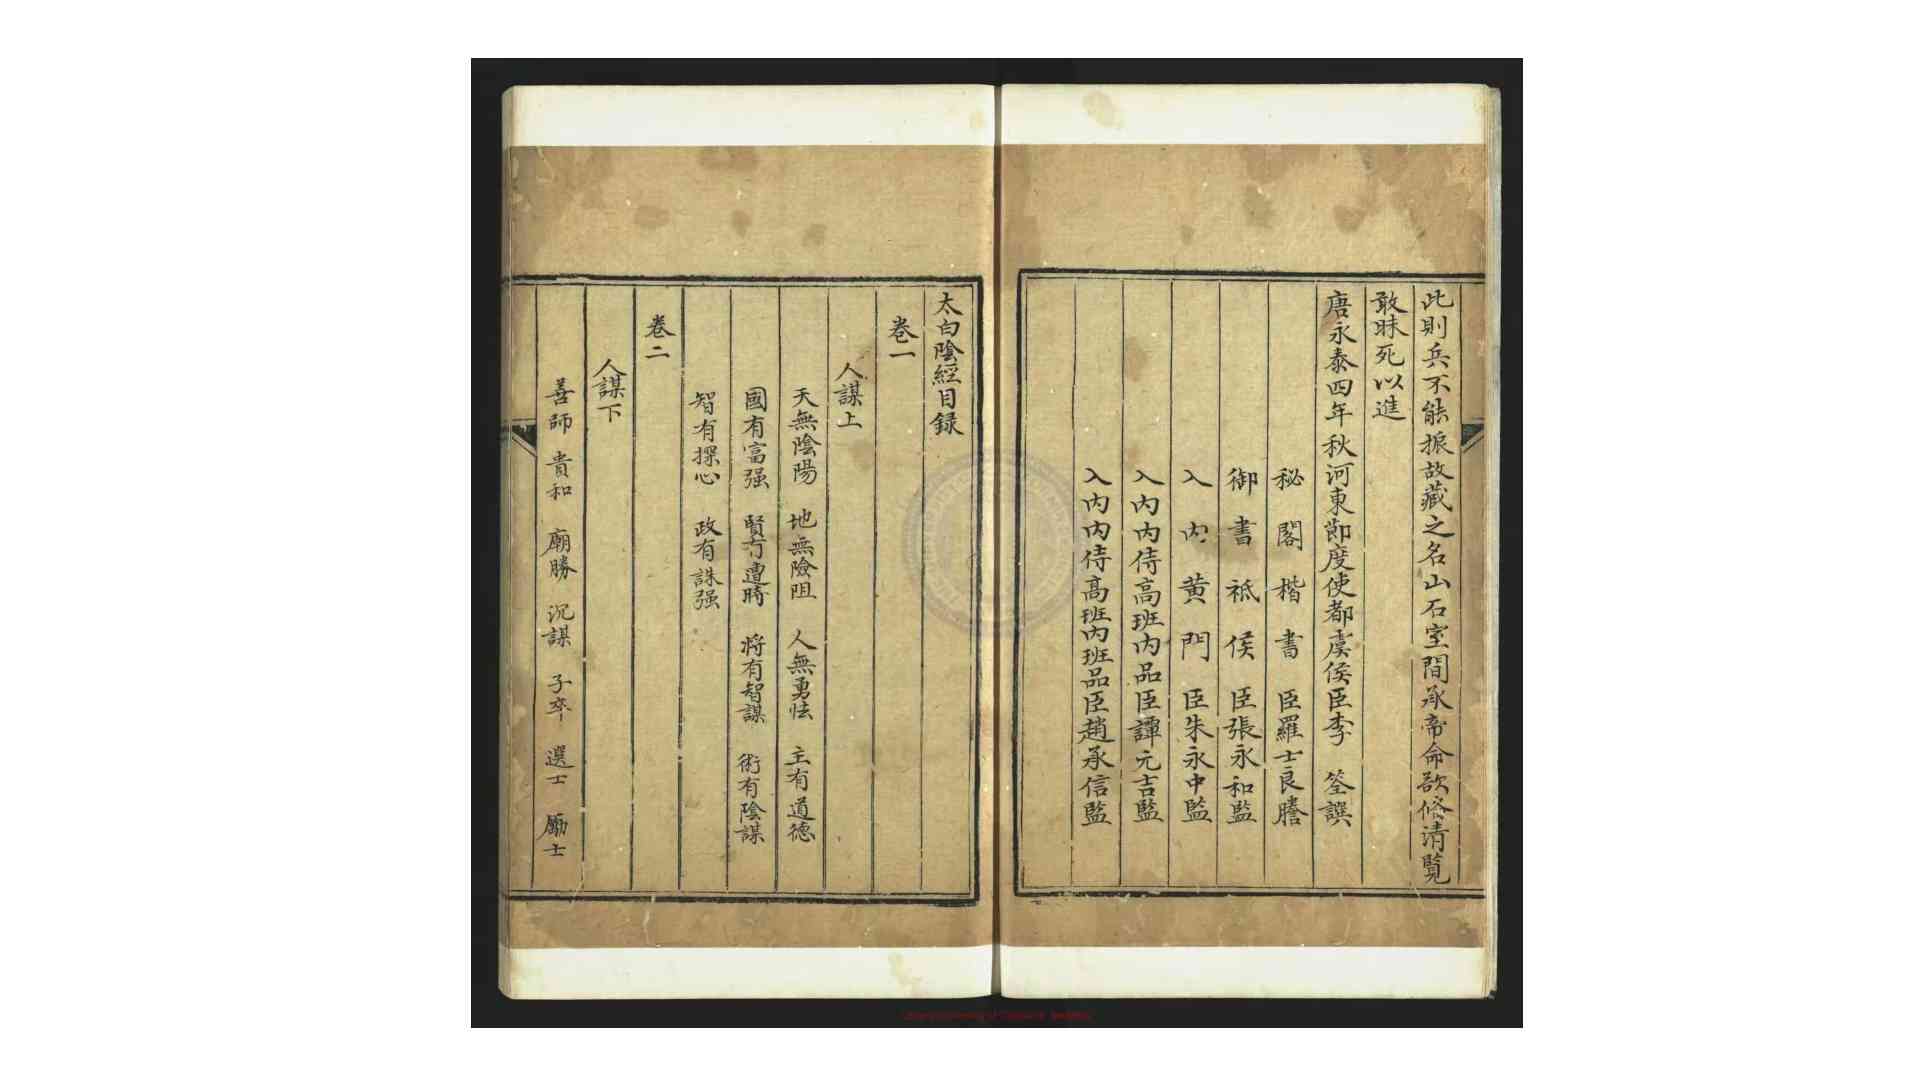 此則兵不能振故藏之名山石室間承帝命欲修清覧
敢昧死以進
唐永泰四年秋河東節度使都虞侯臣李　筌譔
秘閣楷書臣羅士良謄
御書祗侯臣張永和監
入内黄門臣朱永中監
入内内侍高班内品臣譚元吉監
入内内侍高班内班品臣趙承信監
太白陰經目録
卷一
人謀上
天無陰陽　地無險阻　人無勇怯　主有道德
國有富强　賢有遭時　將有智謀　術有陰謀
智有探心　政有誅强
卷二
人謀下
善師　貴和　廟勝　沉謀　子卒　選士　勵士